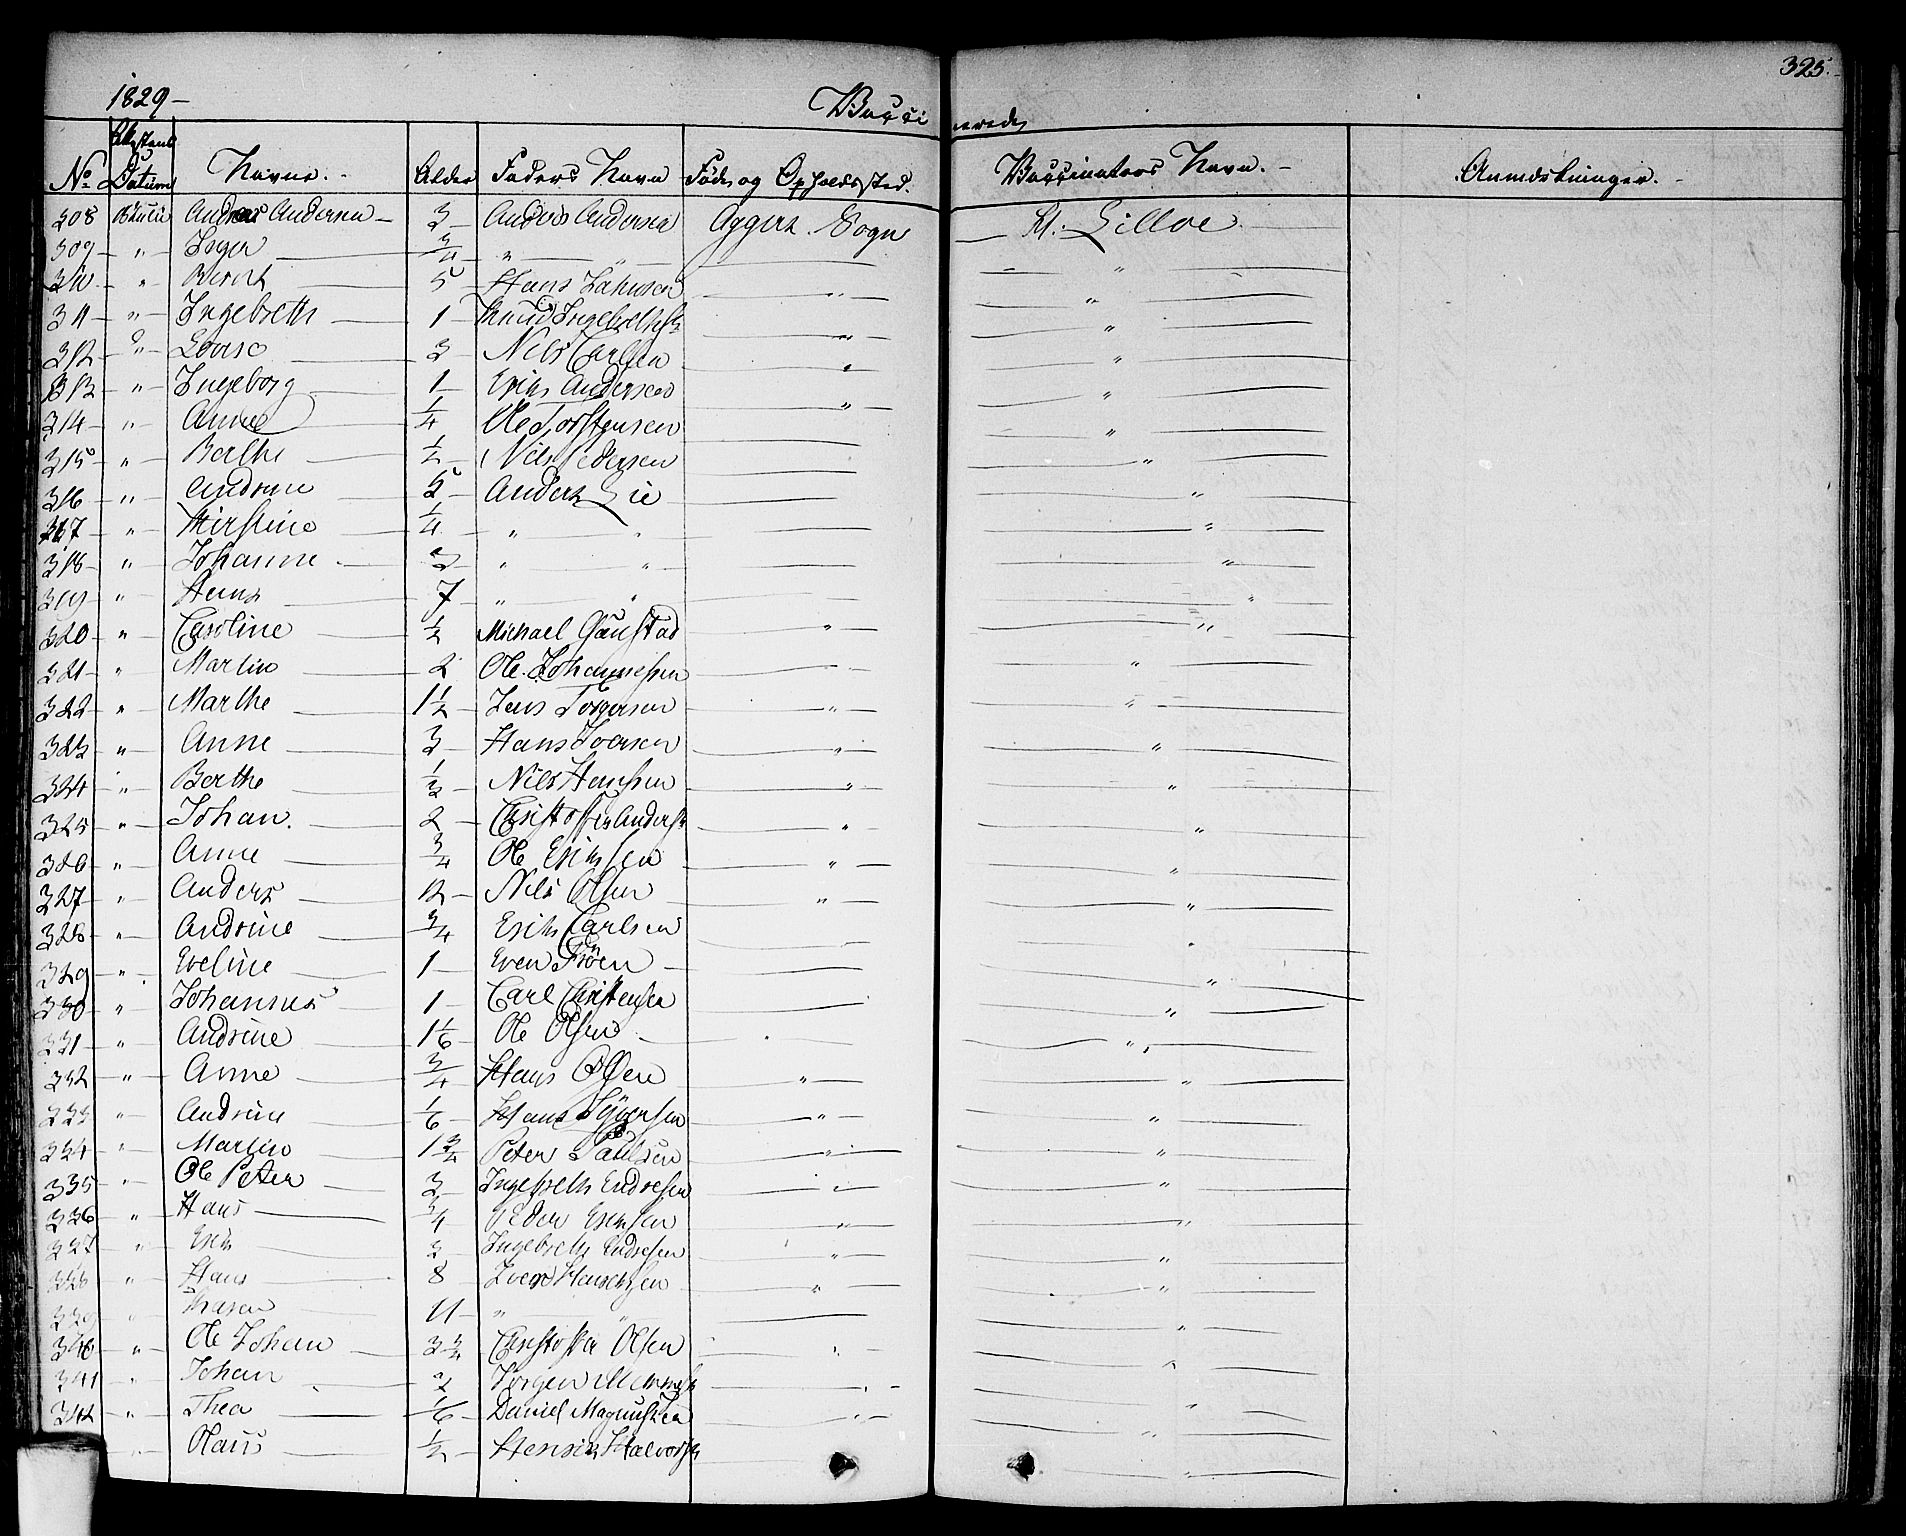 1829 - Vacci nerede 325.
No Attestens Datum Navne. - Alder Faders Navn Føde og Opholdssted. Vaccinators Navn. - Anmerkninger. -
308 Andreas Andersen - 3 Anders Andersen Aggers Sogn Kl. Lilloe.
309 " Inger 3/4 "
310 " Berent 5 Hans "
311 " Ingebreth 1 Knud Ingebrethsen "
312 " Lovise 3 Nils Carlsen "
313 " Ingeborg 1 Erik Andersen "
314 " Anne 1/4 Ole Torstensen "
315 " Berthe 1/2 Nils Pedersen "
316 " Andrine 5 Anders Lie "
317 " Kirstine 1/4 " " "
318 " Johanne 3 " " "
319 " Hans 7 " " "
320 " Caroline 1/2 Michael Gaustad " "
321 " Martin 2 Ole Johannessen " "
322 " Marthe 1 1/2 Jens Torgersen " "
323 " Anne 3 Hans Iversen " "
324 " Berthe 1/2 Nils Hansen " "
325 " Johan. 2 Christoffer Anders " "
326 " Anne 3/4 Ole Eriksen " "
327 " Anders 12 Nils Olsen " "
328 " Andrine 3/4 Erik Carlsen "
329 " Eveline 1 Even Fröen "
330 " Johannes 1 Carl Christensen "
331 " Andrine 1 1/6 Ole Olsen "
332 " Anne 3/4 Hans Olsen " "
333 " Andrine 1/6 Hans Syversen " "
334 " Martin 1 3/4 Peter Paulsen " "
335 " Ole Peter 3 Ingebreth Endresen " "
336 " Hans 3/4 Peder Eriksen " "
337 " Erik 3 Ingebreth Endresen " "
338 " Hans 8 Iver " "
339 " Karen 11 " "
340 " Ole Johan 3 3/4 Christoffer Olsen " "
341 " Johan 2 Jörgen " "
342 " Thea 1/6 Daniel Magnussen " "
" Olaus 1/2 Henrik Halvorsen "